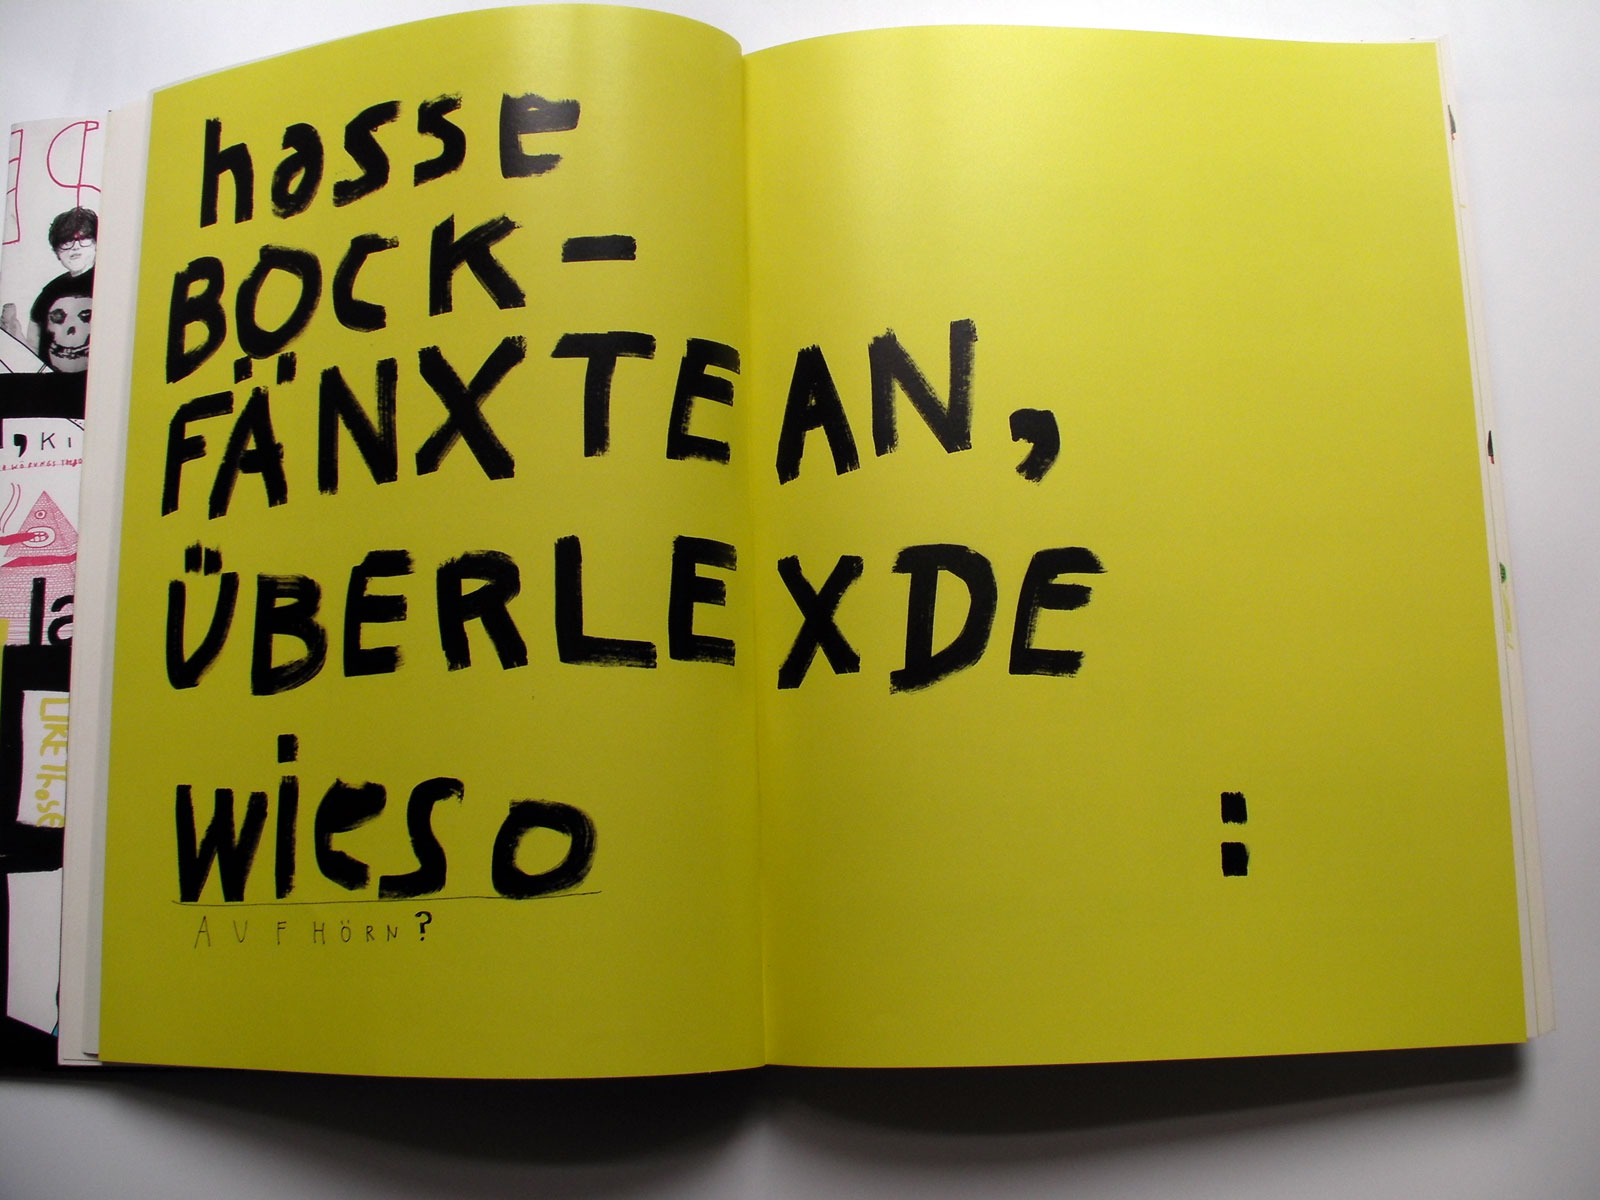 hasse
BOCK-
FÄNXTE AN,
ÜBERLEXDE
wieso :
AUFHÖRN?
, Ki
la
LIKE Those